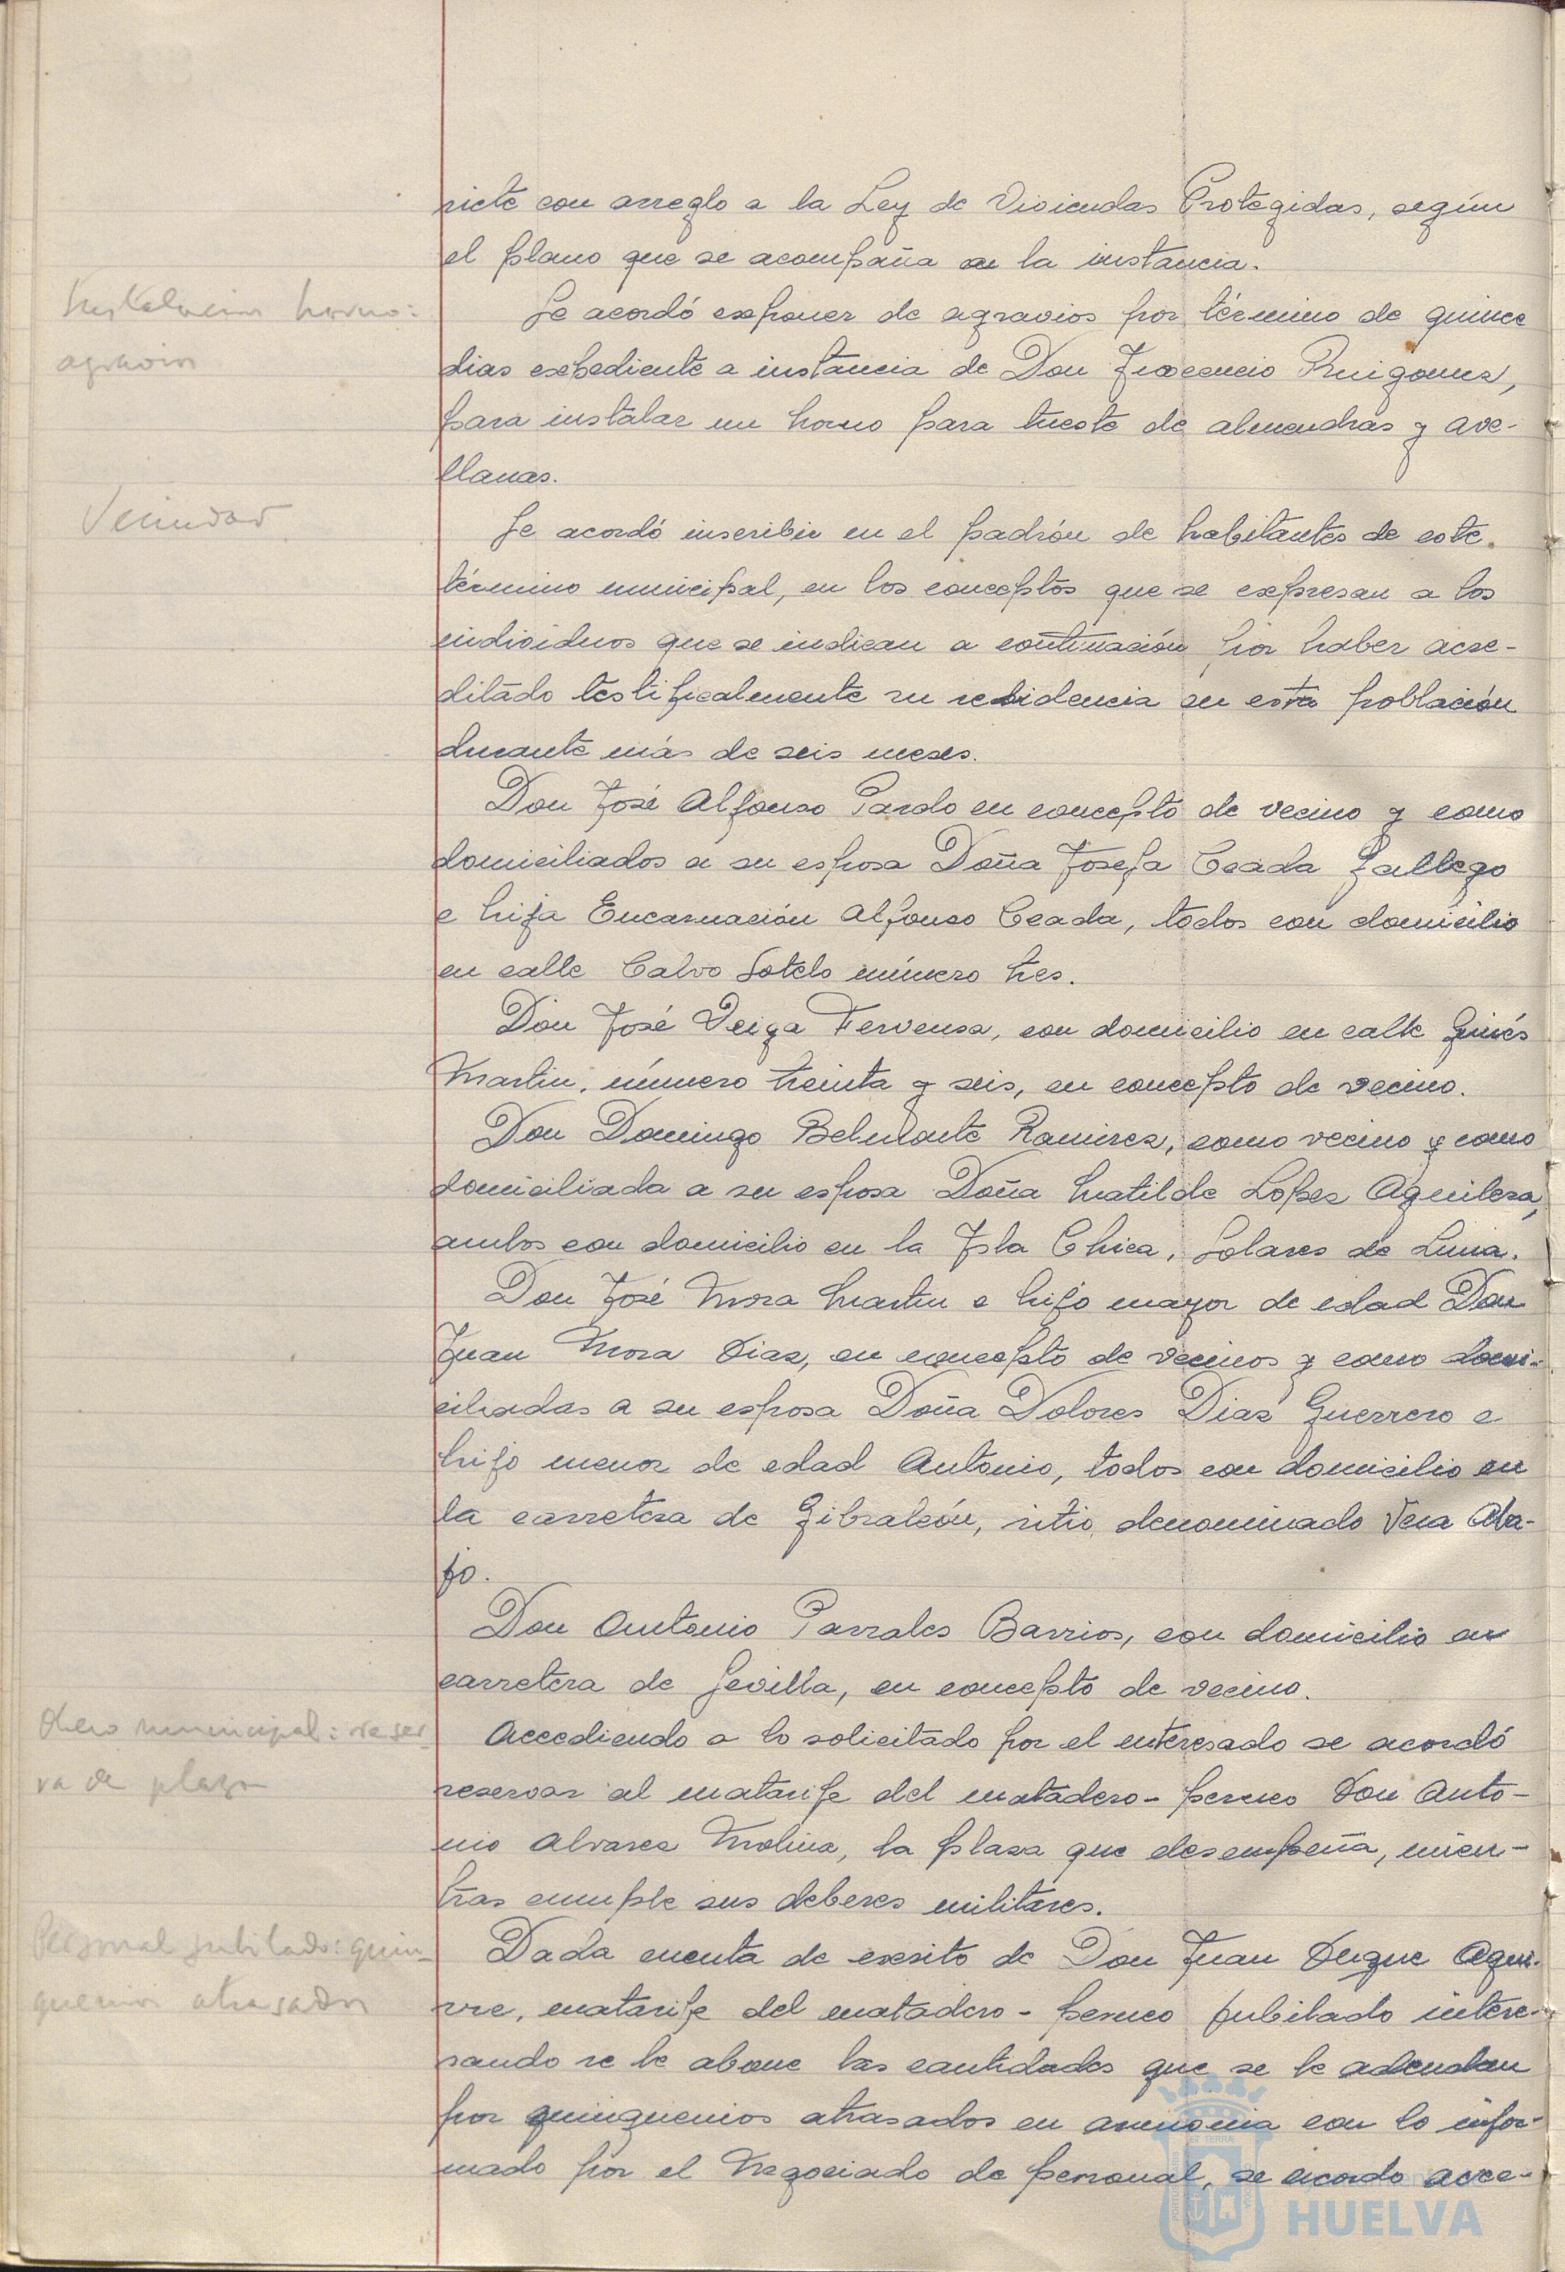 siete con arreglo a la Ley de Viviendas Protegidas, según
el plano que se acompaña a la instancia.
Instalación horno:
agravios
Se acordó exponer de agravios por término de quince
dias expediente a instancia de Don Inocencio Ruigomez,
para instalar un horno para tueste de almendras y ave-
llanas.
Vecindad
Se acordó inscribir en el padrón de habitantes de este
término municipal, en los conceptos que se expresan a los
individuos que se indican a continuación por haber acre-
ditado testificalmente su residencia en esta población
durante más de seis meses.
Don José Alfonso Pardo en concepto de vecino y como
domiciliados a su esposa Doña Josefa Ceada Gallego
e hija Encarnación Alfonso Ceada, todos con domicilio
en calle Calvo Sotelo número tres.
Don José Veiga Fervensa, con domicilio en calle Ginés
Martin, número treinta y seis, en concepto de vecino.
Don Domingo Belmonte Ramirez, como vecino y como
domiciliada a su esposa Doña Matilde Lopez Aguilera,
ambos con domicilio en la Isla Chica, Solares de Luna.
Don José Mora Martin e hijo mayor de edad Don
Juan Mora Diaz, en concepto de vecinos y como domi-
ciliadas a su esposa Doña Dolores Diaz Guerrero e
hijo menor de edad Antonio, todos con domicilio en
la carretera de Gibraleón, sitio denominado Vera Aba-
jo.
Don Antonio Parrales Barrios, con domicilio en
carretera de Sevilla, en concepto de vecino.
Obrero municipal: reser
va de plaza
Accediendo a lo solicitado por el interesado se acordó
reservar al matarife del matadero-perneo Don Anto-
nio Alvarez Molina, la plaza que desempeña, mien-
tras cumple sus deberes militares.
Personal jubilado: quin-
quenios atrasados
Dada cuenta de escrito de Don Juan Duque Agui-
rre, matarife del matadero-perneo jubilado intere-
sando se le abone las cantidades que se le adeudan
por quinquenios atrasados en armonia con lo infor-
mado por el Negociado de personal, se acordo acce-
HUELVA